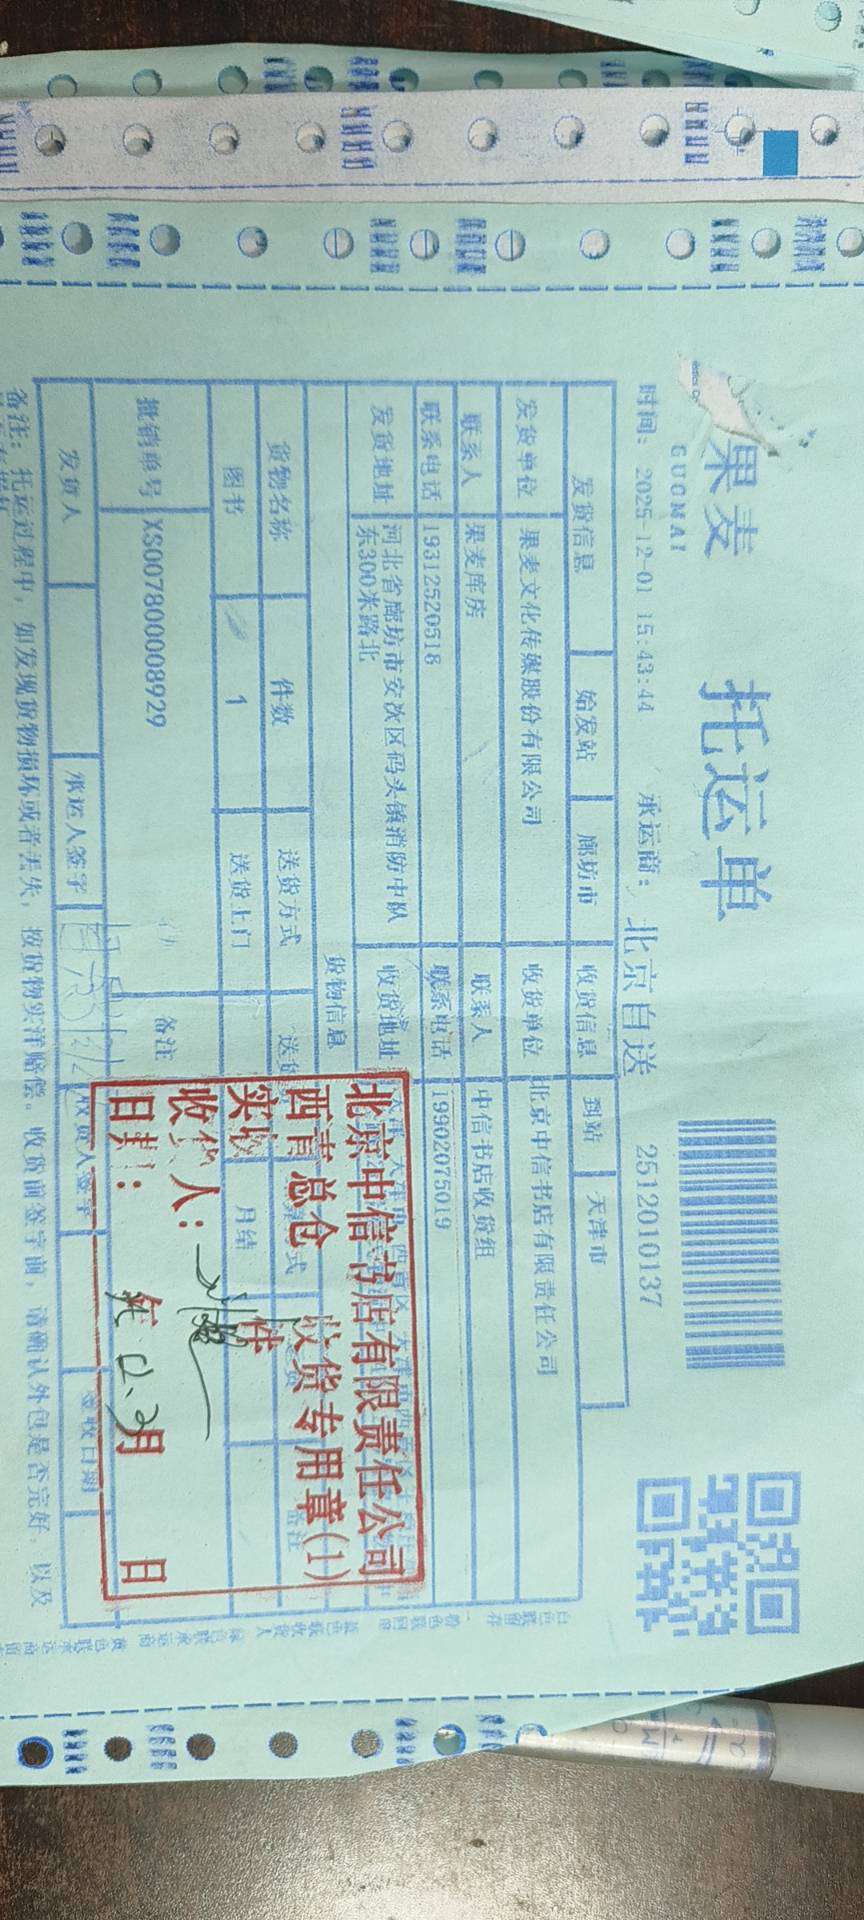 果麦
GUOMAI
托运单
时间: 2025-12-01 15:43:44 承运商: 北京自送 2512010137
发货信息 始发站 廊坊市 收货信息 到站 天津市
发货单位 果麦文化传媒股份有限公司 收货单位 北京中信书店有限责任公司
联系人 果麦库房 联系人 中信书店收货组
联系电话 19312520518 联系电话 19902075019
发货地址 河北省廊坊市安次区码头镇消防中队
东300米路北 收货地址
货物信息
货物名称 件数 送货方式 备注
图书 1 送货上门 月结
批销单号 XS007800008929 备注
发货人 承运人签字 收货人签字 签收日期
备注: 托运过程中, 如发现货物损坏或者丢失, 按货物实洋赔偿。收货前签字前, 请确认外包是否完好, 以及
北京中信书店有限责任公司
西青总仓 收货专用章(1)
实收 件
收货人:
日期: 年 12.2月 日